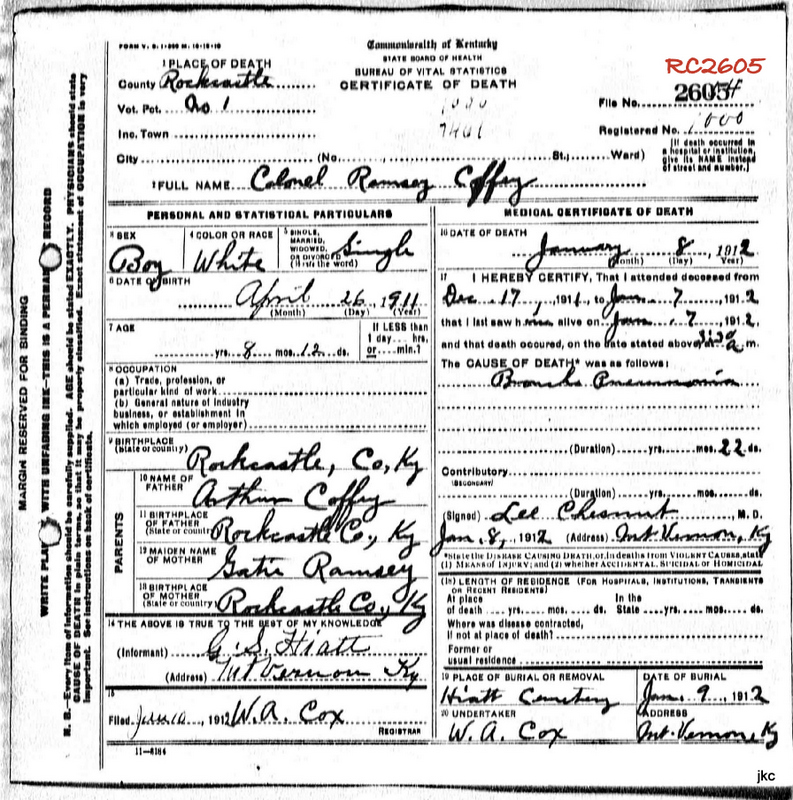 FORM V. S. 1
Commonwealth of Kentucky
STATE BOARD OF HEALTH
BUREAU OF VITAL STATISTICS
CERTIFICATE OF DEATH
RC2605
1 PLACE OF DEATH
County Rockcastle
Vot. Pct. No 1
Inc. Town
City (No. , St.; Ward)
File No. 2605
Registered No. 1000
[If death occurred in
a hospital or institution,
give its NAME instead
of street and number.]
2 FULL NAME Colonel Ramsey Coffey
PERSONAL AND STATISTICAL PARTICULARS
3 SEX
Boy
4 COLOR OR RACE
White
5 SINGLE,
MARRIED,
WIDOWED,
OR DIVORCED
(Write the word)
Single
6 DATE OF BIRTH
April 26, 1911
(Month) (Day) (Year)
7 AGE
yrs. 8 mos. 12 ds.
If LESS than
1 day, hrs.
or min.?
8 OCCUPATION
(a) Trade, profession, or
particular kind of work
(b) General nature of industry
business, or establishment in
which employed (or employer)
9 BIRTHPLACE
(State or country)
Rockcastle, Co, Ky
PARENTS
10 NAME OF
FATHER
Arthur Coffey
11 BIRTHPLACE
OF FATHER
(State or country)
Rockcastle Co., Ky
12 MAIDEN NAME
OF MOTHER
Ramsey
13 BIRTHPLACE
OF MOTHER
(State or country)
Rockcastle Co., Ky
14 THE ABOVE IS TRUE TO THE BEST OF MY KNOWLEDGE
(Informant) G. S. Hiatt
(Address) Mt Vernon Ky
15
Filed Jan 10, 1912 W. A. Cox
REGISTRAR
11-8184
MEDICAL CERTIFICATE OF DEATH
16 DATE OF DEATH
January 8, 1912
(Month) (Day) (Year)
17 I HEREBY CERTIFY, That I attended deceased from
Dec. 17, 1911, to Jan. 7, 1912
that I last saw him alive on Jan. 7, 1912,
and that death occured, on the date stated above, at 3:30 a m.
The CAUSE OF DEATH* was as follows:
Broncho Pneumonia
(Duration) yrs. mos. 22 ds.
Contributory
(SECONDARY)
(Duration) yrs. mos. ds.
(Signed) Lee Chesnut M. D.
Jan. 8, 1912 (Address) Mt. Vernon, Ky
*State the DISEASE CAUSING DEATH, or, in deaths from VIOLENT CAUSES, state
(1) MEANS OF INJURY; and (2) whether ACCIDENTAL, SUICIDAL OR HOMICIDAL
(18) LENGTH OF RESIDENCE (FOR HOSPITALS, INSTITUTIONS, TRANSIENTS
OR RECENT RESIDENTS)
At place
of death yrs. mos. ds.
In the
State yrs. mos. ds.
Where was disease contracted,
if not at place of death?
Former or
usual residence
19 PLACE OF BURIAL OR REMOVAL
Hiatt Cemetery
DATE OF BURIAL
Jan. 9, 1912
20 UNDERTAKER
W. A. Cox
ADDRESS
Mt. Vernon, Ky
MARGIN RESERVED FOR BINDING
WRITE PLAINLY WITH UNFADING INK—THIS IS A PERMANENT RECORD
N. B.—Every item of information should be carefully supplied. AGE should be stated EXACTLY. PHYSICIANS should state
CAUSE OF DEATH in plain terms, so that it may be properly classified. Exact statement of OCCUPATION is very
important. See instructions on back of certificate.
jkc